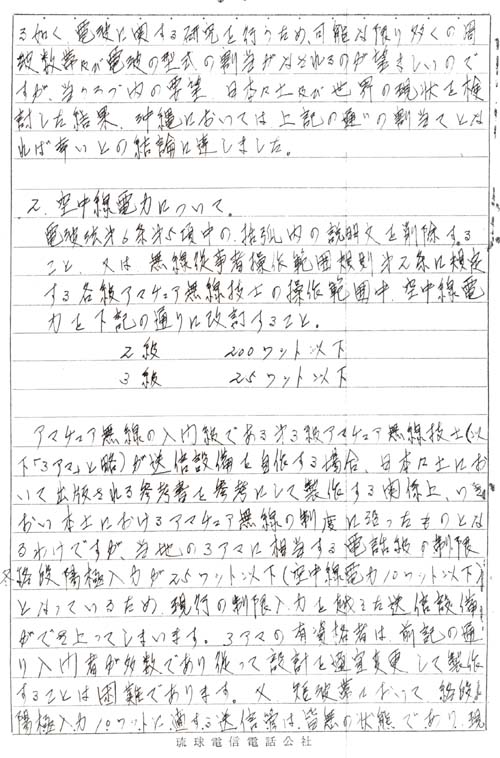 る如く電波に関する研究を行うため、可能な限り多くの周
波数帯及び電波の型式の割当がなされるのが望ましいので
すが、当クラブ内の要望、日本々土及び世界の現状を検
討した結果、沖縄においては上記の通りの割当てとな
れば幸いとの結論に達しました。
2. 空中線電力について。
電波法第6条第5項中の、括弧内の説明文を削除する
こと、又は無線従事者操作範囲規則第2条に規定
する各級アマチュア無線技士の操作範囲中、空中線電
力を下記の通りに改訂すること。
2級 200ワット以下
3級 25ワット以下
アマチュア無線の入門級である第3級アマチュア無線技士(以
下「3アマ」と略)が送信設備を自作する場合、日本々土にお
いて出版される参考書を参考にして製作する関係上、
おい本土におけるアマチュア無線の制度に沿ったものとな
るわけですが、当地の3アマに相当する電話級の制限
終段陽極入力が25ワット以下(空中線電力10ワット以下)
となっているため、現行の制限入力を越えた送信設備
ができ上ってしまいます。3アマの有資格者は前記の通
り入門者が多数であり従って設計を適宜変更して製作
することは困難であります。又、短波帯において終段
陽極入力10ワットに適する送信管は、皆無の状態であり、現
琉球電信電話公社